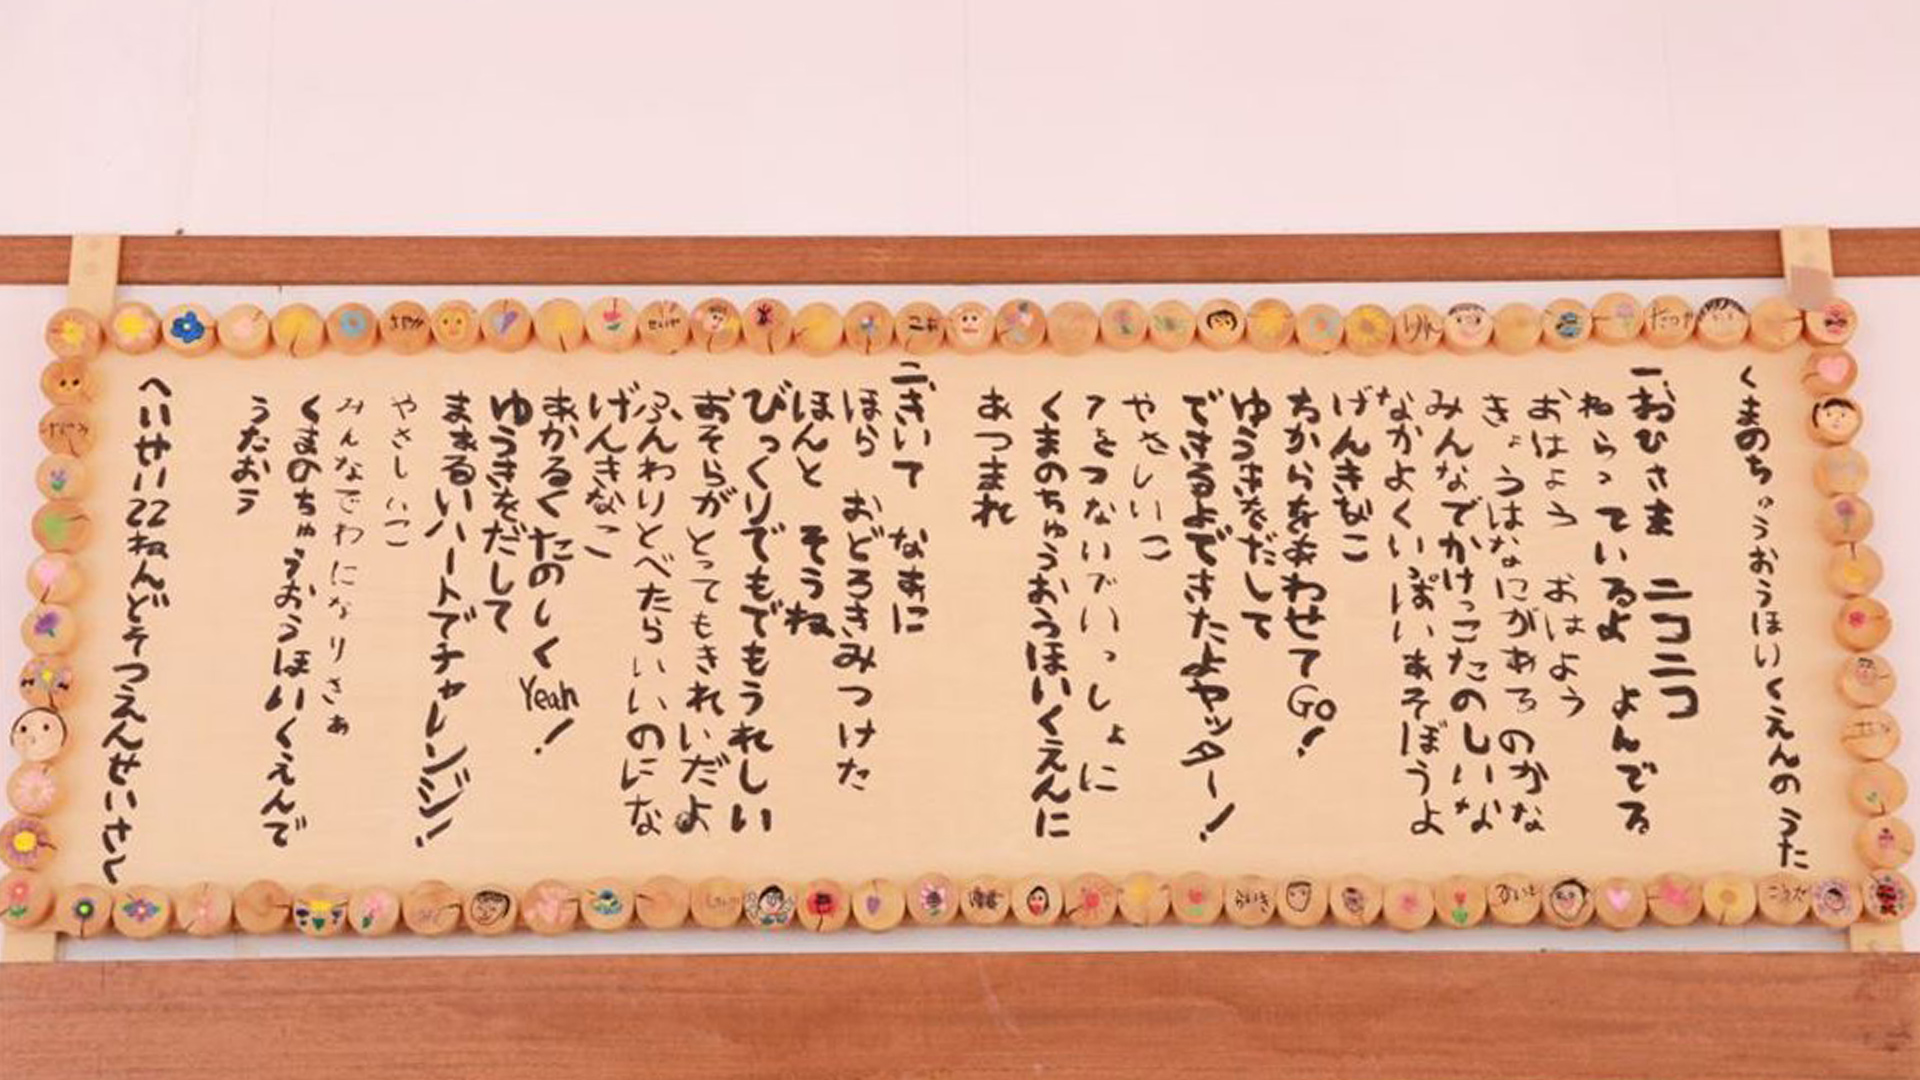 くまのちゅうおうほいくえんのうた
一、おひさま ニコニコ
わらっているよ よんでる
おはよう おはよう
きょうはなにがあるのかな
みんなでかけっこたのしいな
なかよくいっぱいあそぼうよ
げんきなこ
ちからをあわせてGo!
ゆうきをだして
できるよできたよヤッター!
やさしいこ
てをつないでいっしょに
くまのちゅうおうほいくえんに
あつまれ
二、きいて なあに
ほら おどろきみつけた
ほんと そうね
びっくりでもでもうれしい
おそらがとってもきれいだよ
ふんわりとべたらいいのにな
げんきなこ
あかるくたのしくYeah!
ゆうきをだして
まあるいハートでチャレンジ!
やさしいこ
みんなでわになりさぁ
くまのちゅうおうほいくえんで
うたおう
へいせい22ねんどそつえんせいさく
さやか
せいや
こお
りん
たつや
らいき
こうた